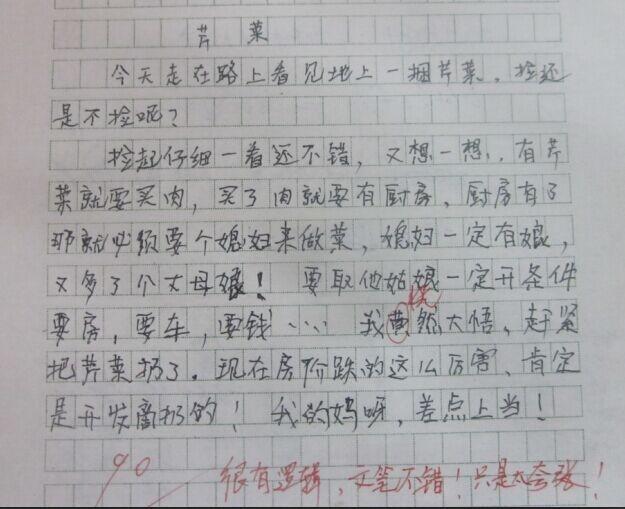 芹菜
今天走在路上看见地上一捆芹菜，捡还
是不捡呢？
捡起仔细一看还不错，又想一想，有芹
菜就要买肉，买了肉就要有厨房，厨房有了
那就必须要个媳妇来做菜，媳妇一定有娘，
又多了个丈母娘！要取他姑娘一定开条件
要房，要车，要钱……我黄然大悟，赶紧
恍
把芹菜扔了。现在房价跌的这么厉害，肯定
是开发商扔的！我的妈呀，差点上当！
90 很有逻辑，文笔不错！只是太夸张！